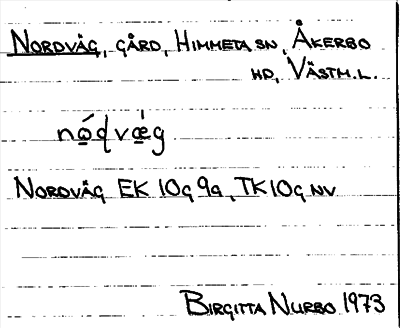 NORDVÄG, GÅRD, HIMMETA SN, ÅKERBO
HD, VÄSTM.L.
nódvǽg
NORDVÄG EK 10G 9a, TK 10G NV
BIRGITTA NURBO 1973